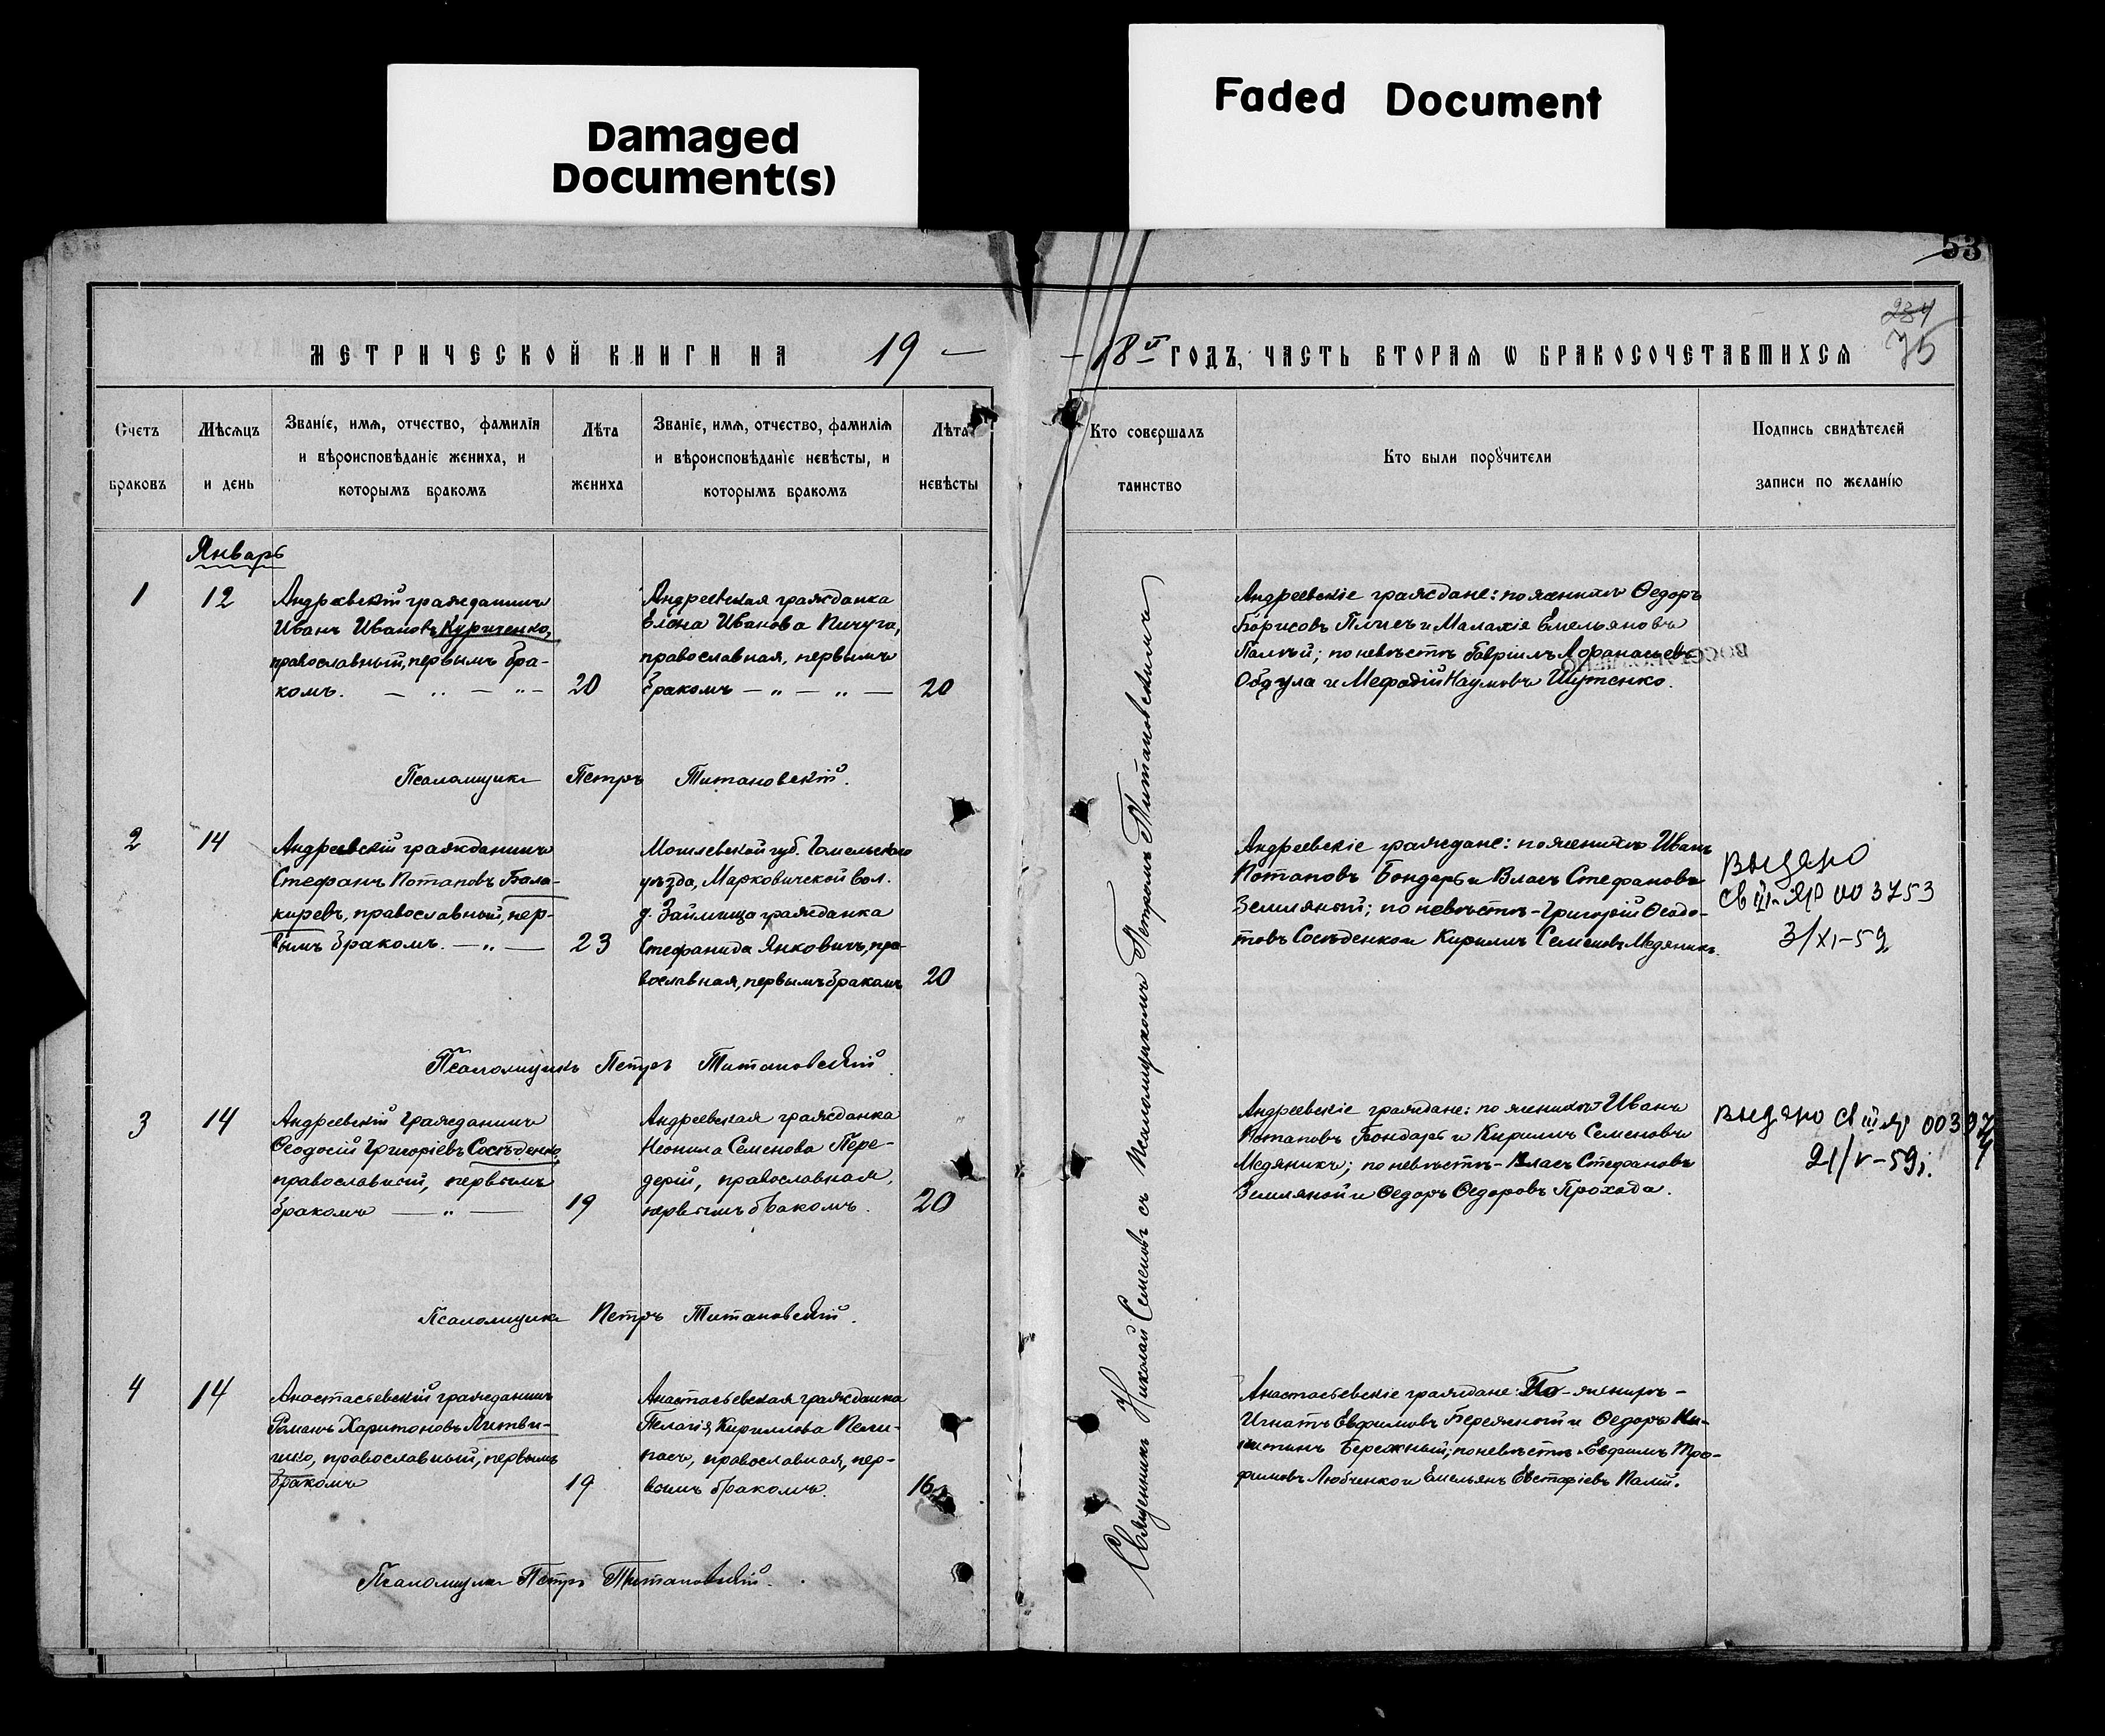 Damaged
Document(s)
Faded Document
53
234
75
МЕТРИЧЕСКОЙ КНИГИ НА 19 —
— 18й ГОДЪ, ЧАСТЬ ВТОРАЯ Ѡ БРАКОСОЧЕТАВШИХСЯ
Счетъ
браковъ
Мѣсяцъ
и день
Званіе, имя, отчество, фамилія
и вѣроисповѣданіе жениха, и
которымъ бракомъ
Лѣта
жениха
Званіе, имя, отчество, фамилія
и вѣроисповѣданіе невѣсты, и
которымъ бракомъ
Лѣта
невѣсты
Кто совершалъ
таинство
Кто были поручители
Подпись свидѣтелей
записи по желанію
Январь
1
12
Андреевскій гражданинъ
Иванъ Ивановъ Куриченко,
православный, первымъ бра-
комъ. — „ — „ —
20
Андреевская гражданка
Елена Иванова Пичуга,
православная, первымъ
бракомъ — „ — „ —
20
Андреевскіе граждане: по женихѣ Ѳедоръ
Борисовъ и Малахія Емельяновъ
Палѣй; по невѣстѣ Гавріилъ Аѳанасьевъ
Обдула и Меѳодій Наумовъ Шутенко.
Псаломщикъ Петръ Титановскій.
2
14
Андреевскій гражданинъ
Стефанъ Потаповъ Бала-
киревъ, православный, пер-
вымъ бракомъ. — „ —
23
Могилевской губ. Гомельскаго
уѣзда, Марковичской вол.
д. Займища гражданка
Стефанида Янковичъ, пра-
вославная, первымъ бракомъ
20
Андреевскіе граждане: по женихѣ Иванъ
Потаповъ Бондарь и Власъ Стефановъ
Земляной; по невѣстѣ - Григорій Ѳеодо-
товъ Сосѣденко и Кириллъ Семеновъ Медяникъ.
Выдано
св III-ЯР 003753
3/XI-59
Псаломщикъ Петръ Титановскій.
3
14
Андреевскій гражданинъ
Ѳеодосій Григоріевъ Сосѣденко,
православный, первымъ
бракомъ — „ —
19
Андреевская гражданка
Неонила Семенова Пере-
дерій, православная,
первымъ бракомъ.
20
Андреевскіе граждане: по женихѣ Иванъ
Потаповъ Бондарь и Кириллъ Семеновъ
Медяникъ; по невѣстѣ - Власъ Стефановъ
Земляной и Ѳедоръ Ѳедоровъ Прохода.
Выдано св III ЯР
21/V-59г.
Псаломщикъ Петръ Титановскій.
4
14
Анастасьевскій гражданинъ
Романъ Харитоновъ Литви-
ненко, православный, первымъ
бракомъ
19
Анастасьевская гражданка
Пелагія Кириллова Пели-
пасъ, православная, пер-
вымъ бракомъ.
16½
Анастасьевскіе граждане: По женихѣ -
Игнатъ Евфимовъ Бережной и Ѳедоръ Ни-
китинъ Бережный; по невѣстѣ - Евфимъ Тро-
фимовъ Любченко и Емельянъ Евстафіевъ Палій.
Псаломщикъ Петръ Титановскій.
Священникъ Николай Семеновъ съ Псаломщикомъ Петромъ Титановскимъ